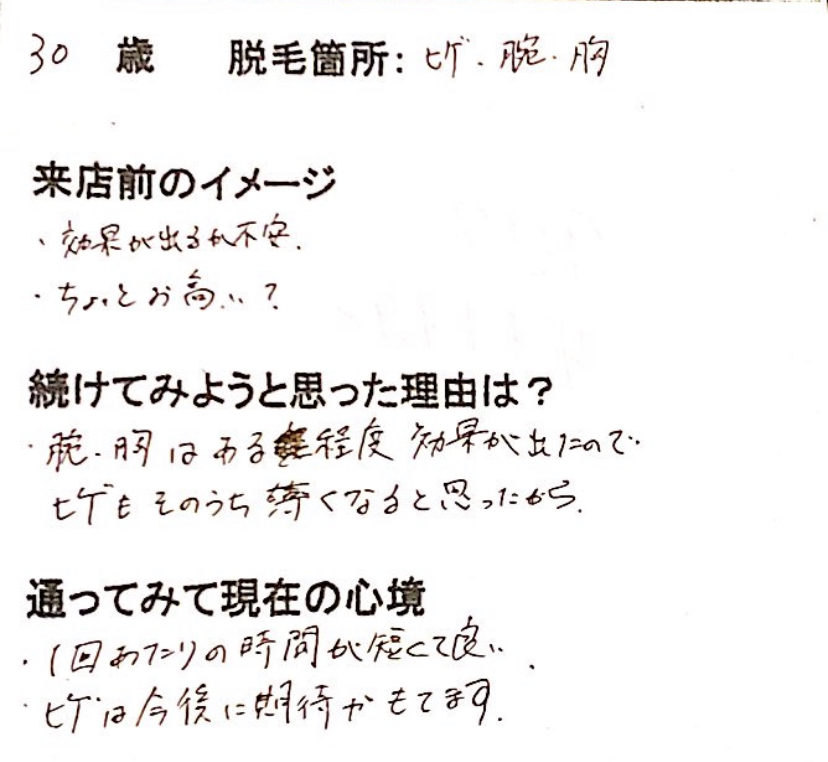 30 歳 脱毛箇所: ヒゲ・腕・胸
来店前のイメージ
・効果が出るか不安.
・ちょっとお高い?
続けてみようと思った理由は?
・腕・胸はある程度 効果が出たので.
ヒゲもそのうち薄くなると思ったから.
通ってみて現在の心境
・1回あたりの時間が短くて良い.
・ヒゲは今後に期待がもてます.